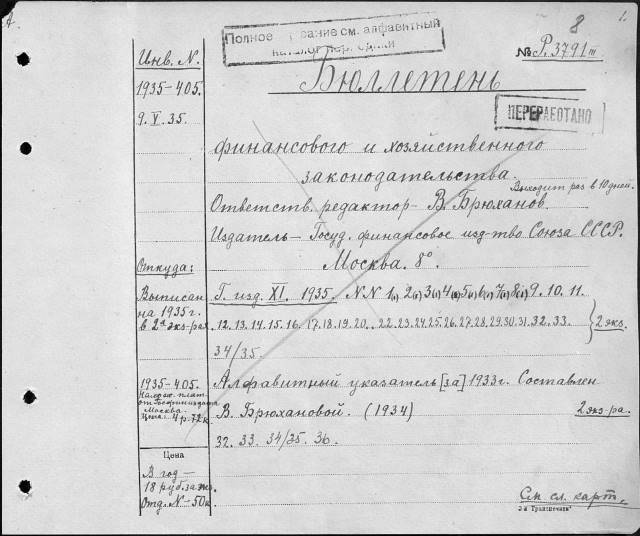 8
1.
Полное описание см. алфавитный
каталог периодики
№ Р.3791 т
Инв. N.
1935-405.
9.V.35.
Бюллетень
ПЕРЕРАБОТАНО
финансового и хозяйственного
законодательства.
Выходит раз в 10 дней.
Ответств. редактор - В. Брюханов.
Издатель - Госуд. финансовое изд-тво Союза ССР.
Москва. 8°
Откуда:
Выписан
на 1935 г.
в 2х экз-рах
Г. изд. XI. 1935. N N 1(1) 2(1) 3(1) 4(1) 5(1) 6(1) 7(1) 8(1) 9. 10. 11.
12. 13. 14. 15. 16. 17. 18. 19. 20. 22. 23. 24. 25. 26. 27. 28. 29. 30. 31. 32. 33.
2 экз.
34/35.
1935-405.
Налож. плат.
от Госфиниздата
Москва.
Цена: 4 р. 72 к.
Алфавитный указатель [за] 1933 г. Составлен
В. Брюхановой. (1934)
2 экз-ра.
32. 33. 34/35. 36.
Цена
В год —
18 руб. за экз.
Отд. N - 50 к.
См. сл. карт.